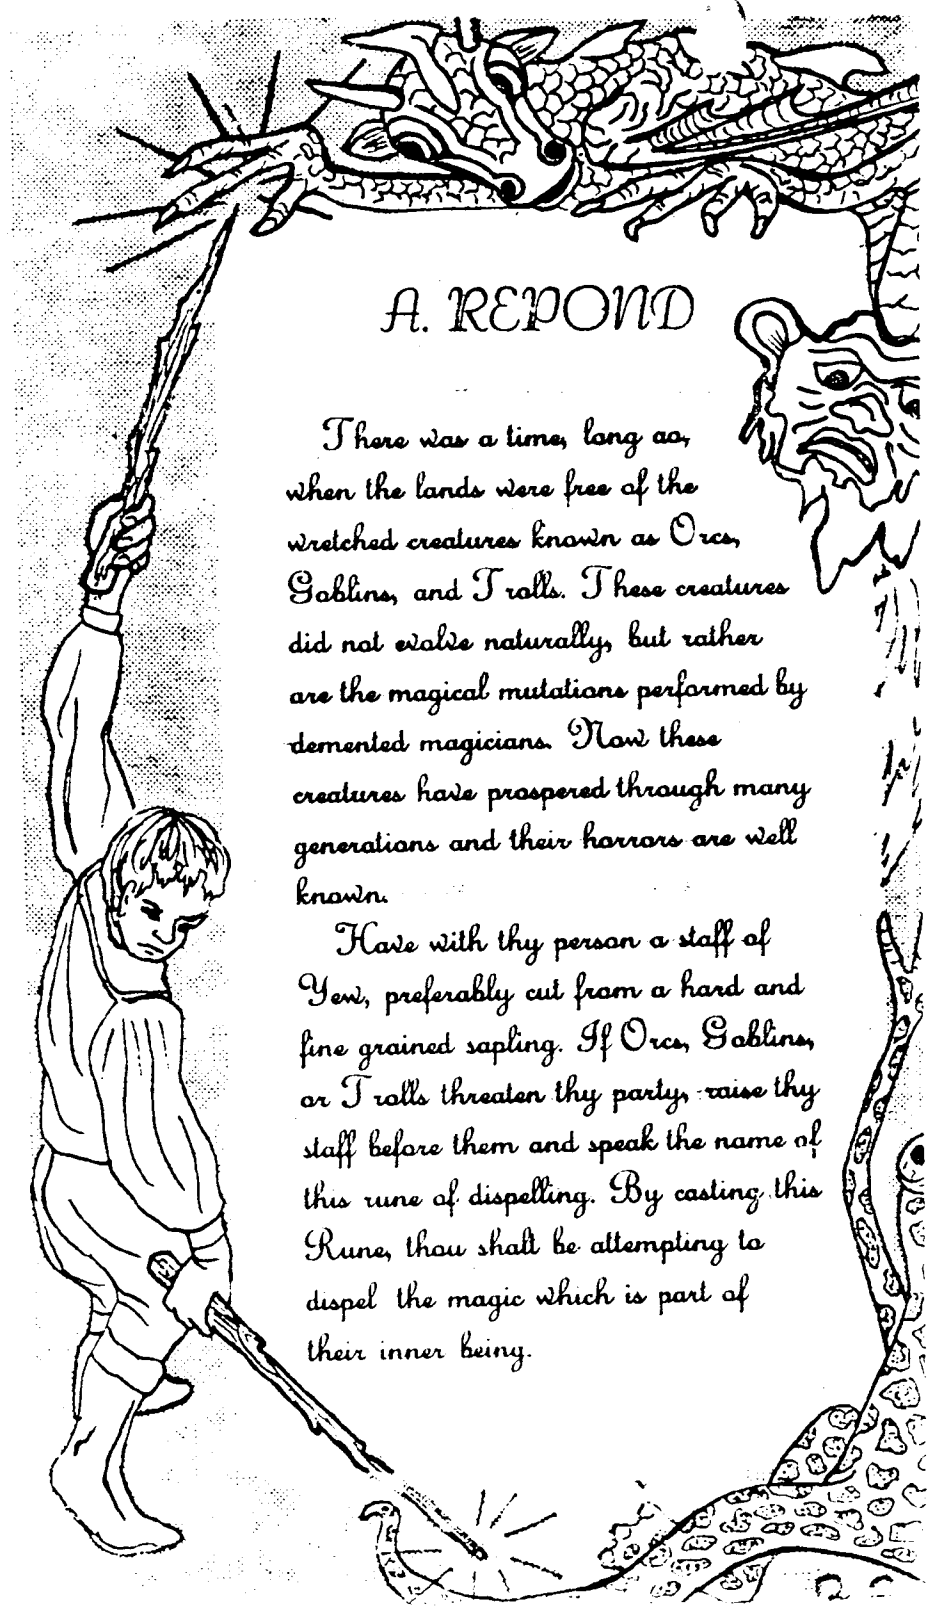 A. REPOND
There was a time, long ao,
when the lands were free of the
wretched creatures known as Orcs,
Goblins, and Trolls. These creatures
did not evolve naturally, but rather
are the magical mutations performed by
demented magicians. Now these
creatures have prospered through many
generations and their horrors are well
known.
Have with thy person a staff of
Yew, preferably cut from a hard and
fine grained sapling. If Orcs, Goblins,
or Trolls threaten thy party, raise thy
staff before them and speak the name of
this rune of dispelling. By casting this
Rune, thou shalt be attempting to
dispel the magic which is part of
their inner being.